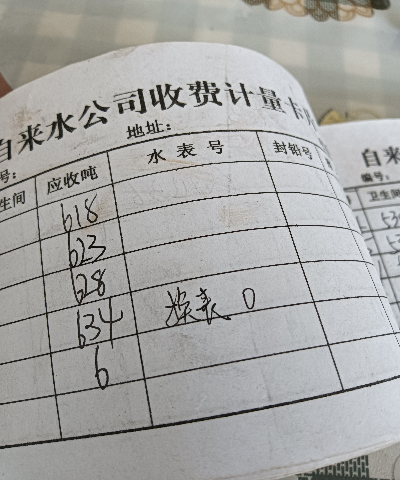 自来水公司收费计量卡
号: 地址:
生间 应收吨 水表号 封铅号
618
623
628
634 换表 0
6
自来
编号:
卫生间